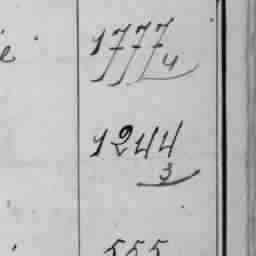 1777
4
1244
3
555